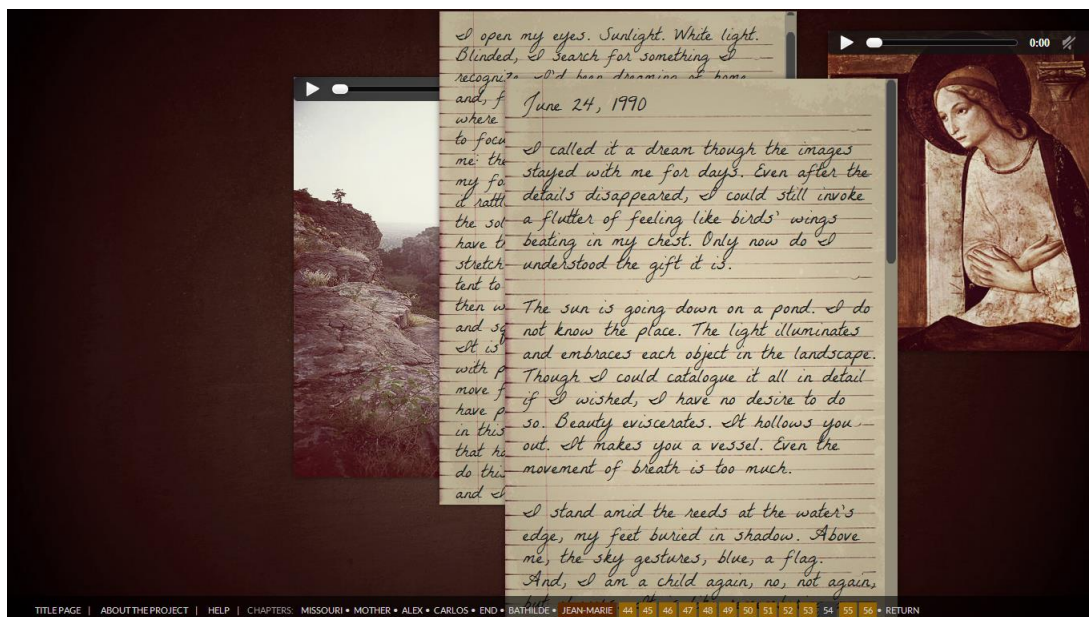 I open my eyes. Sunlight. White light.
Blinded, I search for something I
recognize. I'd been dreaming of home
and, f
where
to focu
me: the
my fo
it rattl
the sol
have t
stretch
tent to
then w
and sq
It is
with p
move f
have p
in this
that ha
do this
and I
June 24, 1990
I called it a dream though the images
stayed with me for days. Even after the
details disappeared, I could still invoke
a flutter of feeling like birds' wings
beating in my chest. Only now do I
understood the gift it is.
The sun is going down on a pond. I do
not know the place. The light illuminates
and embraces each object in the landscape.
Though I could catalogue it all in detail
if I wished, I have no desire to do
so. Beauty eviscerates. It hollows you
out. It makes you a vessel. Even the
movement of breath is too much.
I stand amid the reeds at the water's
edge, my feet buried in shadow. Above
me, the sky gestures, blue, a flag.
And, I am a child again, no, not again,
0:00
TITLE PAGE | ABOUT THE PROJECT | HELP | CHAPTERS: MISSOURI • MOTHER • ALEX • CARLOS • END • BATHILDE • JEAN-MARIE 44 45 46 47 48 49 50 51 52 53 54 55 56 • RETURN